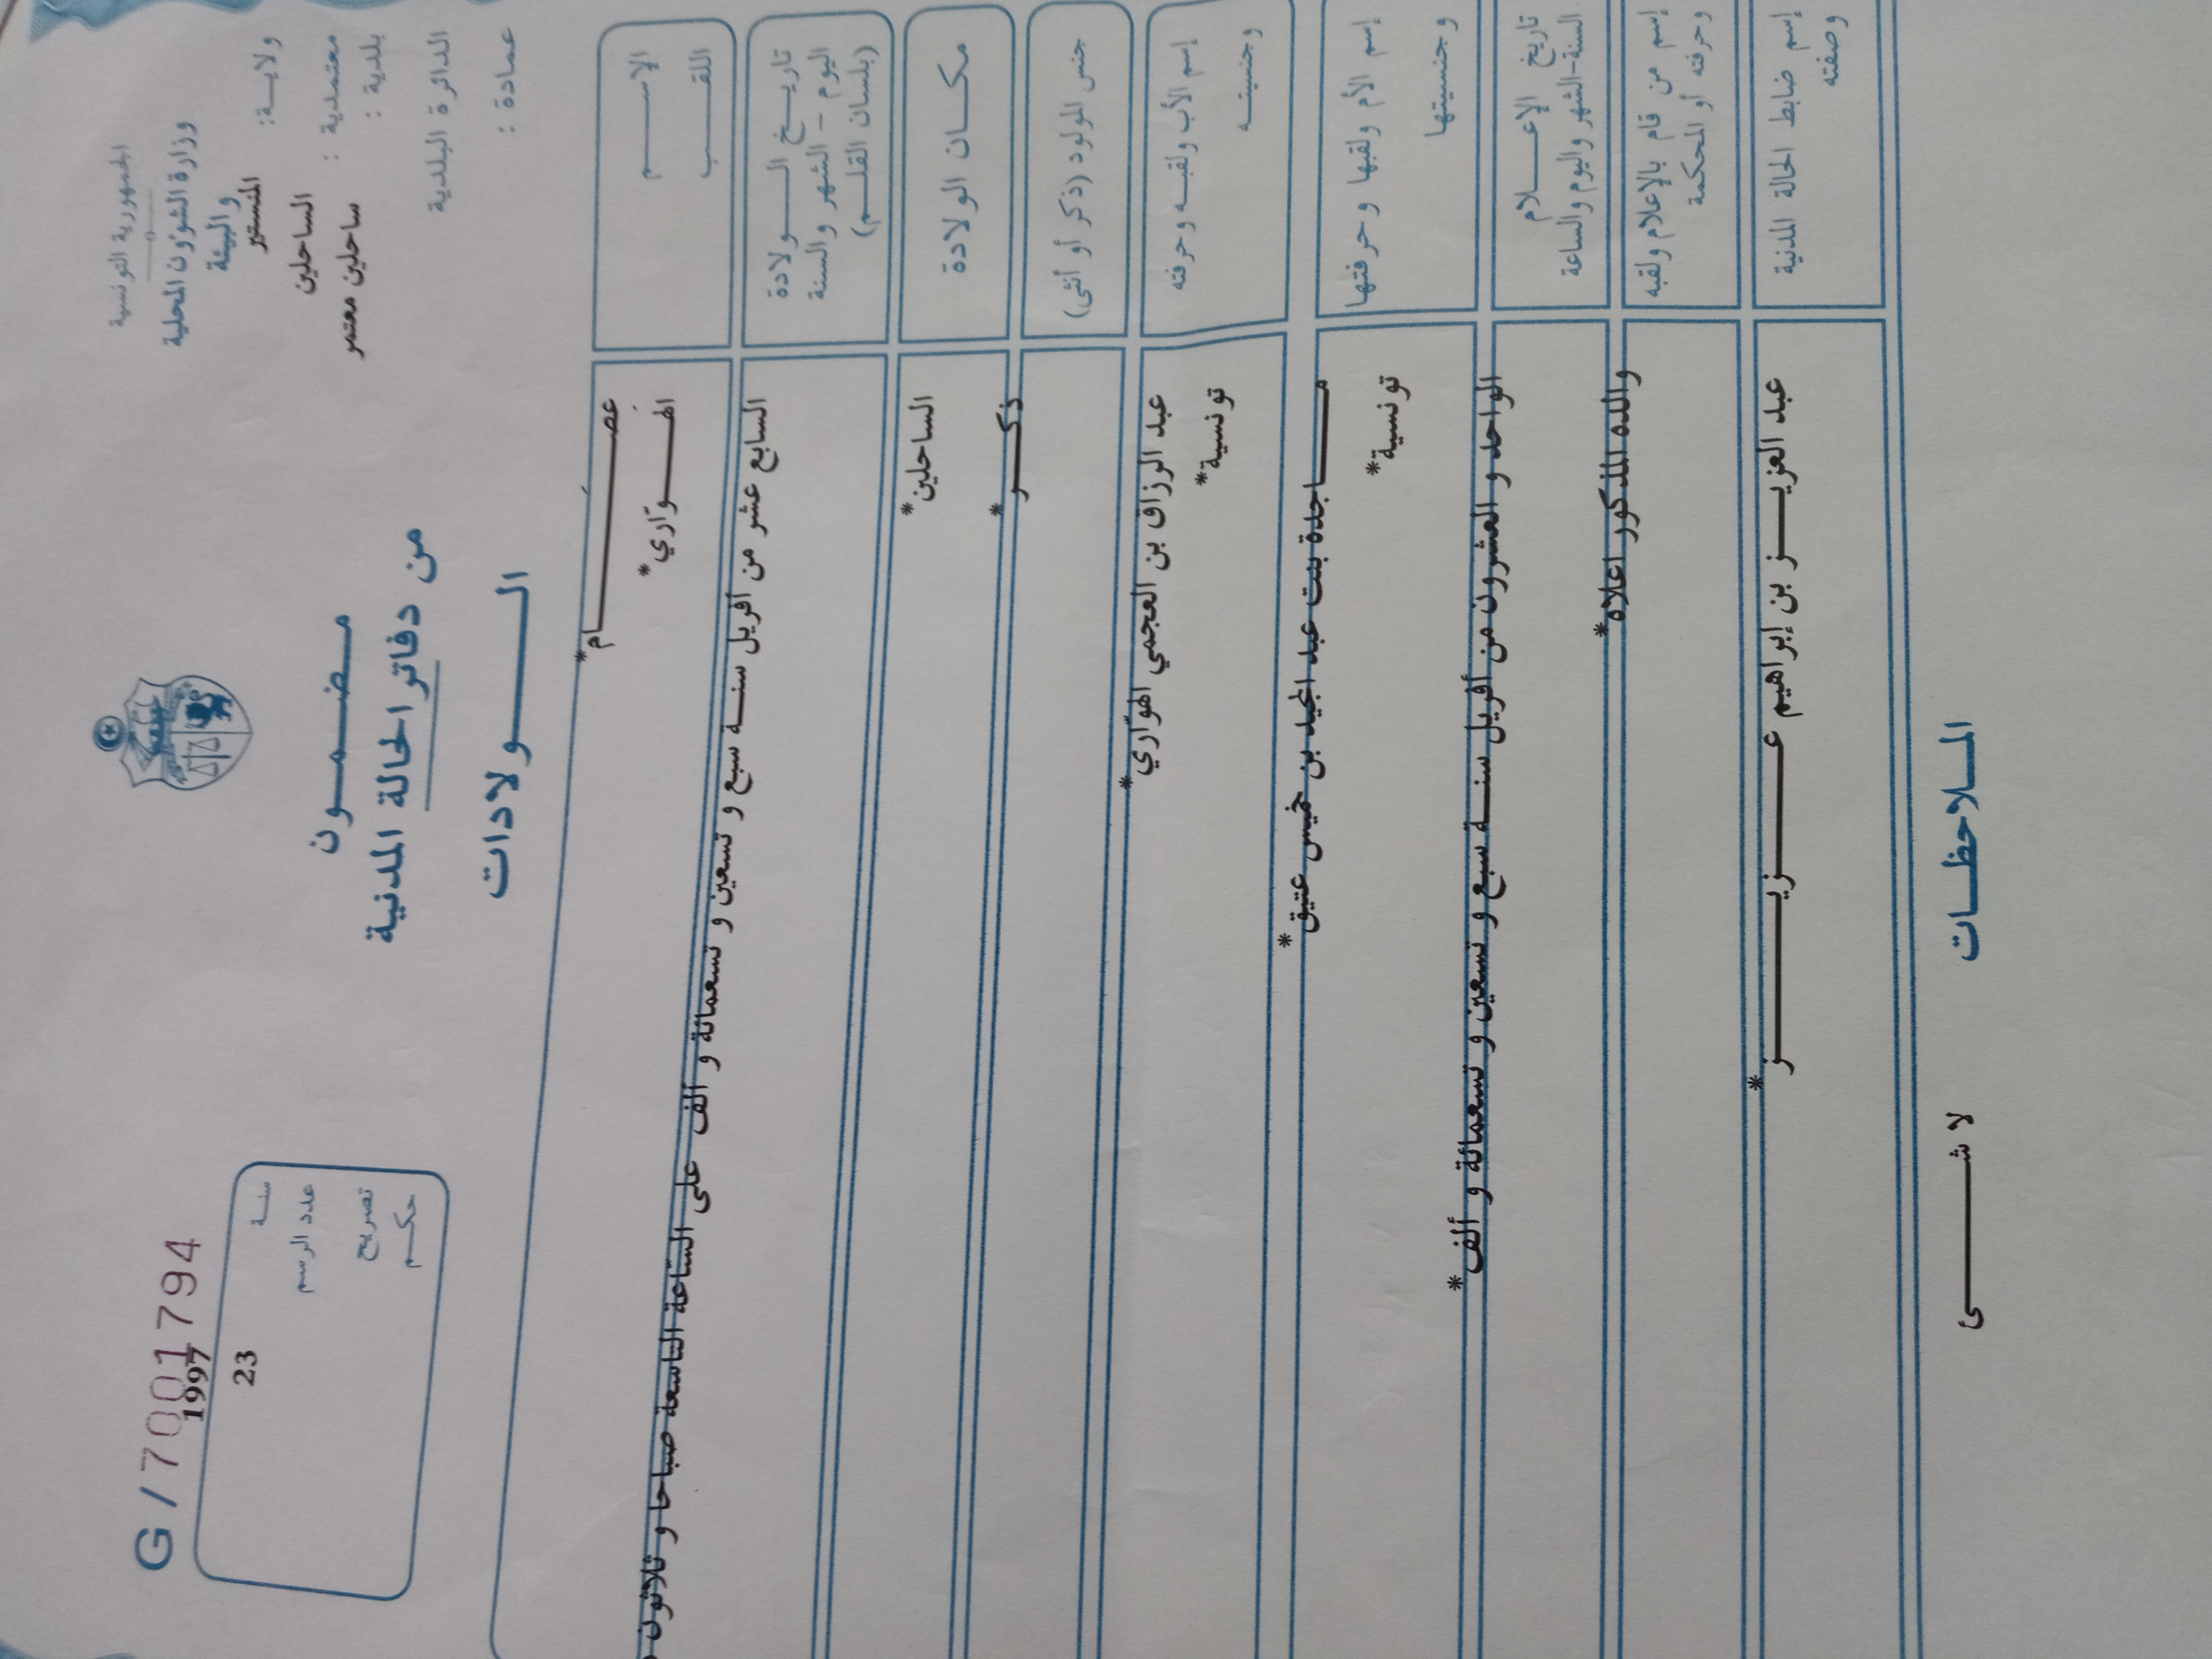 الجمهورية التونسية
وزارة الشؤون المحلية
والبيئة
ولاية: المنستير
معتمدية : الساحلين
بلدية : ساحلين معتمر
الدائرة البلدية
عمادة :
مضمون
من دفاتر الحالة المدنية
الولادات
G / 7001794
1997
سنة
23
عدد الرسم
تصريح
حكم
الإسم
عصَام*
اللقب
الهَوّاري*
تاريخ الولادة
اليوم - الشهر والسنة
(بلسان القلم)
السابع عشر من أفريل سنة سبع و تسعين و تسعمائة و ألف على السّاعة التاسعة صباحا و ثلاثون
مكان الولادة
الساحلين*
جنس المولود (ذكر أو أنثى)
ذكر*
إسم الأب ولقبه وحرفته
عبد الرزاق بن العجمي الهوّاري*
وجنسيته
تونسية*
إسم الأم ولقبها وحرفتها
ماجدة بنت عبد المجيد بن خميس عتيق*
وجنسيتها
تونسية*
تاريخ الإعلام
السنة-الشهر واليوم والساعة
الواحد و العشرون من أفريل سنة سبع و تسعين و تسعمائة و ألف*
إسم من قام بالإعلام ولقبه
وحرفته أو المحكمة
والده المذكور اعلاه*
إسم ضابط الحالة المدنية
وصفته
عبد العزيز بن إبراهيم عزيز*
الملاحظات
لا شى